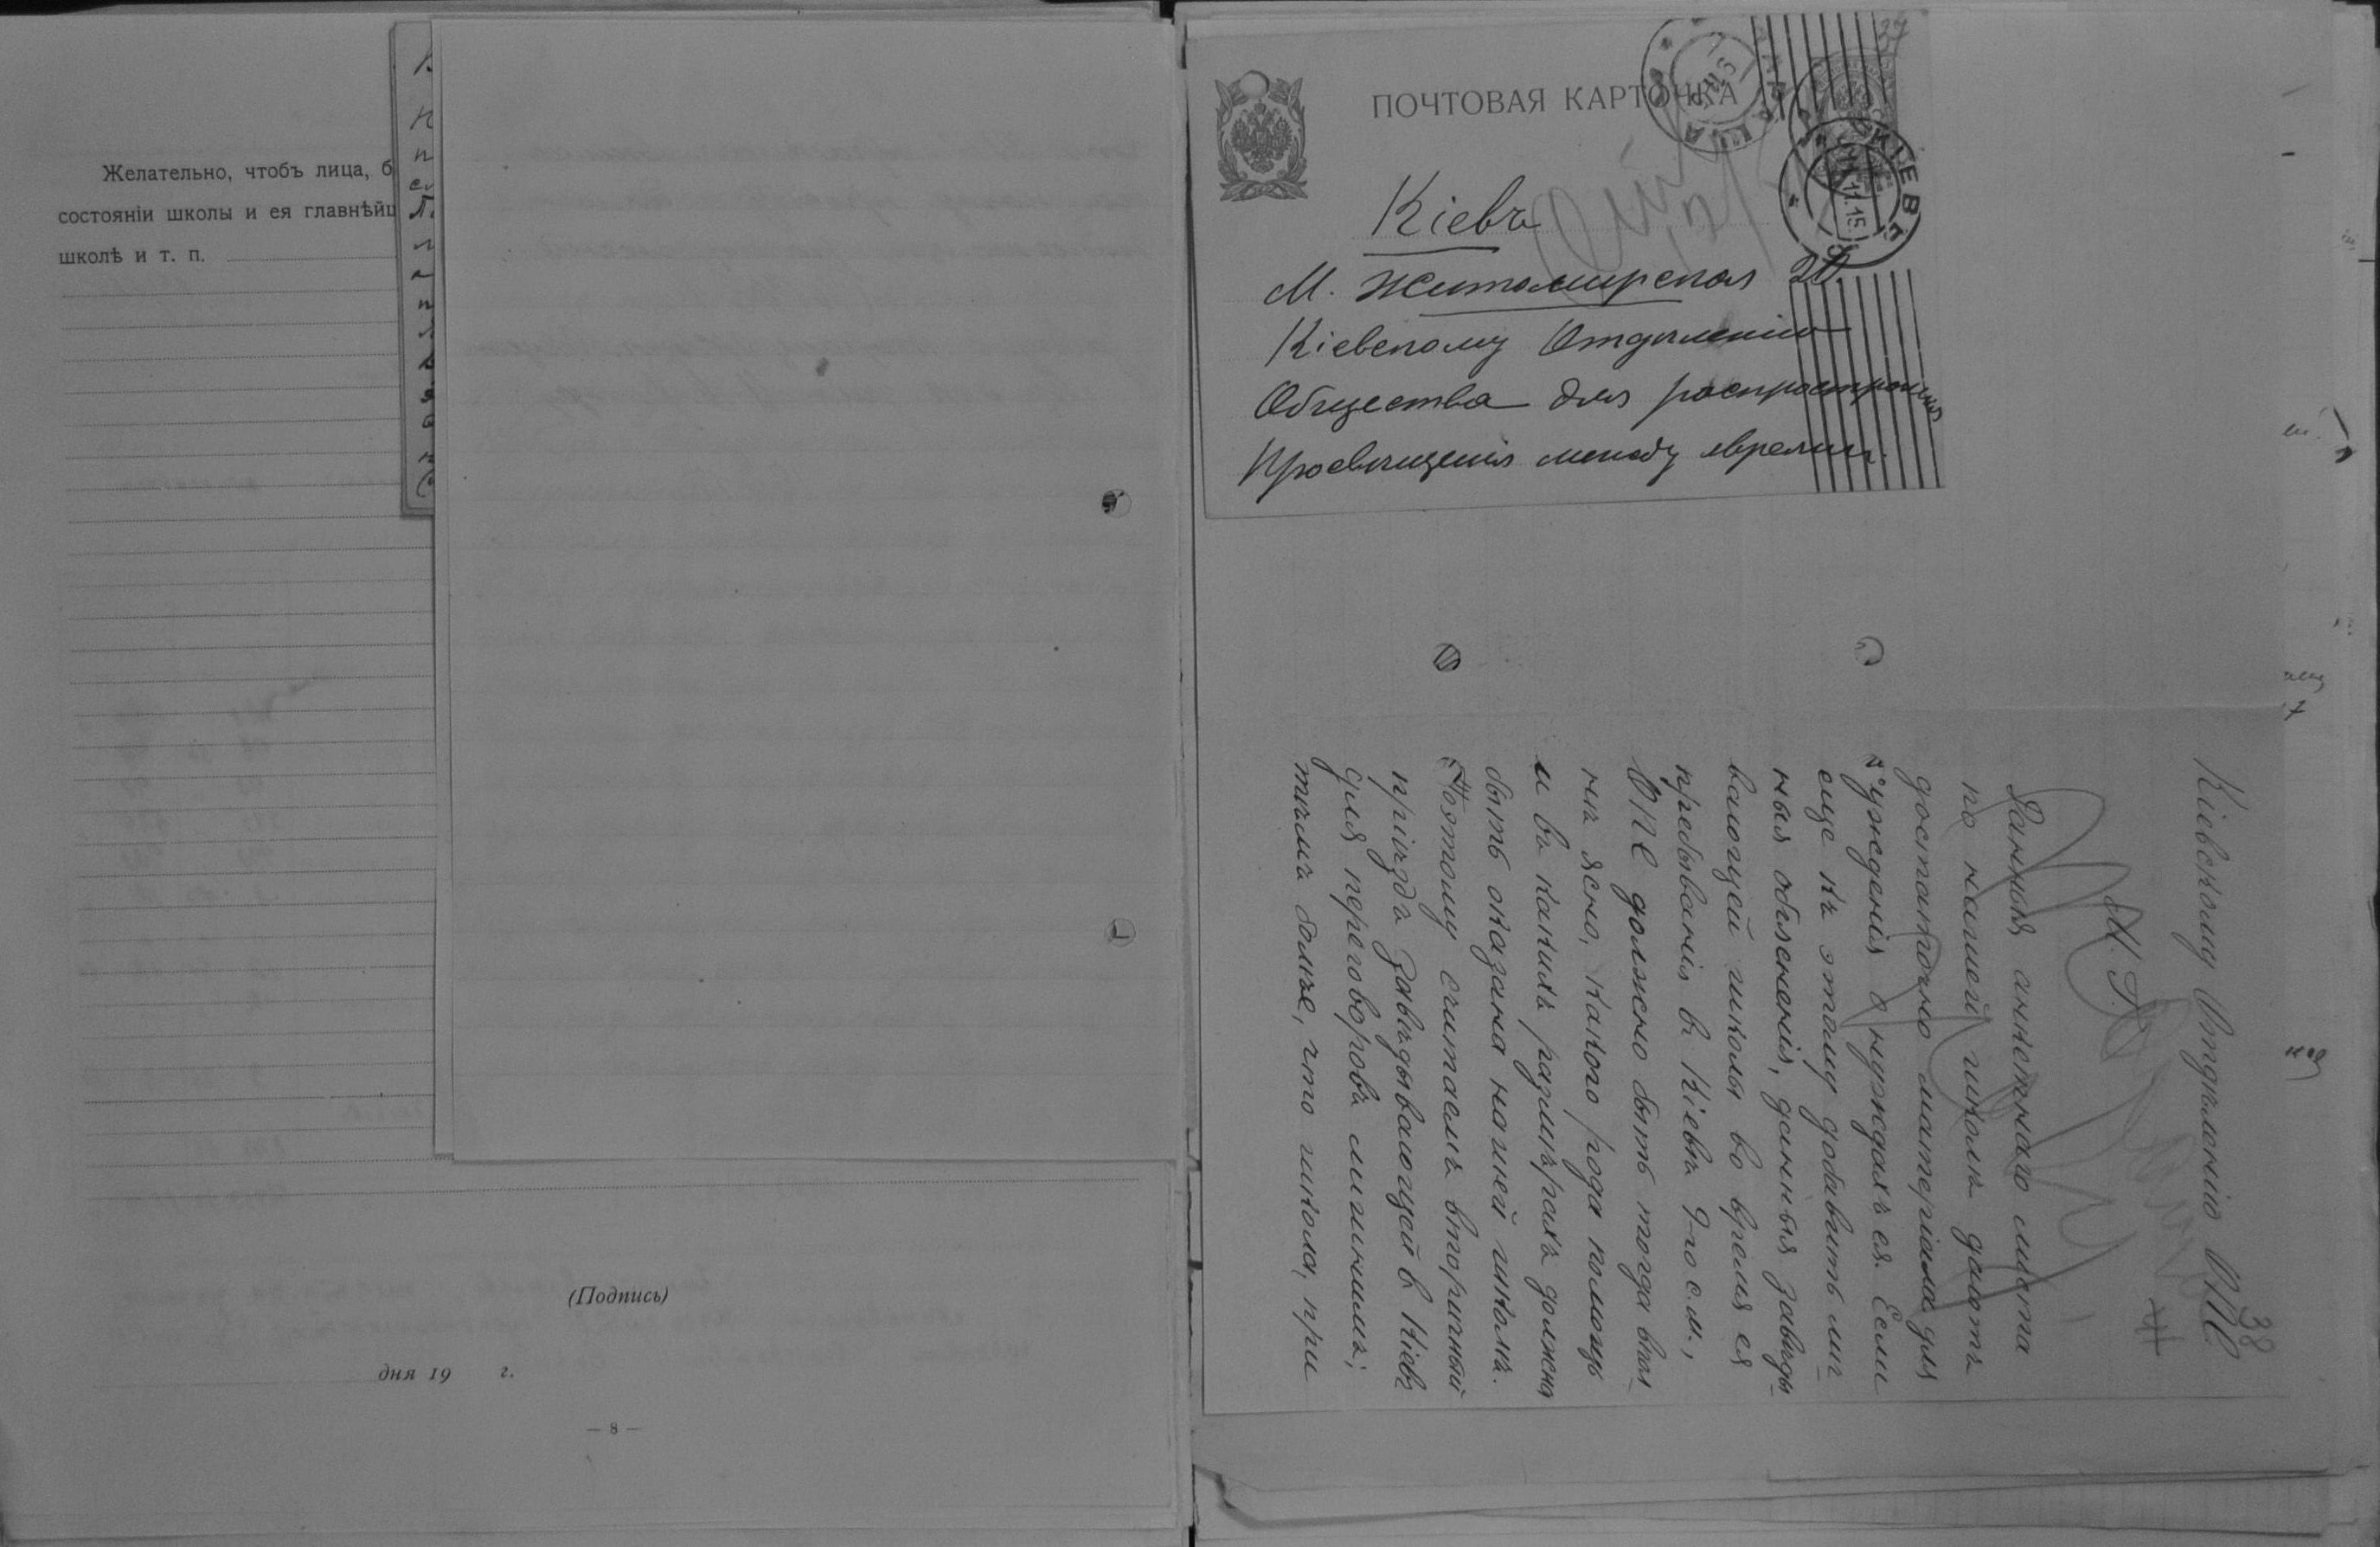 Желательно, чтобъ лица, б
состоянiи школы и ея главнѣйш
школѣ и т. п.
(Подпись)
дня 19 г.
— 8 —
37
ПОЧТОВАЯ КАРТОЧКА
КІЕВЪ
11.15
Кіевъ
М. Житомирская 20.
Кіевскому Отдѣленію
Общества для распространенія
Просвѣщенія между евреями.
38
Кіевскому Отдѣленію ОПЕ
М. Г.
Данныя анкетнаго листа
по нашей школѣ даютъ
достаточно матеріала для
сужденія о нуждахъ ея. Если
еще къ этому добавить лич
ныя объясненія, данныя завѣды
вающей школы во время ея
пребыванія въ Кіевѣ 9-го с.м.,
ОПЕ должно быть тогда впол
нѣ ясно, какого рода помощь
и въ какихъ размѣрахъ должна
быть оказана нашей школѣ.
Поэтому считаемъ вторичный
пріѣздъ завѣдывающей въ Кіевъ
для переговоровъ лишнимъ;
тѣмъ болѣе, что школа, при